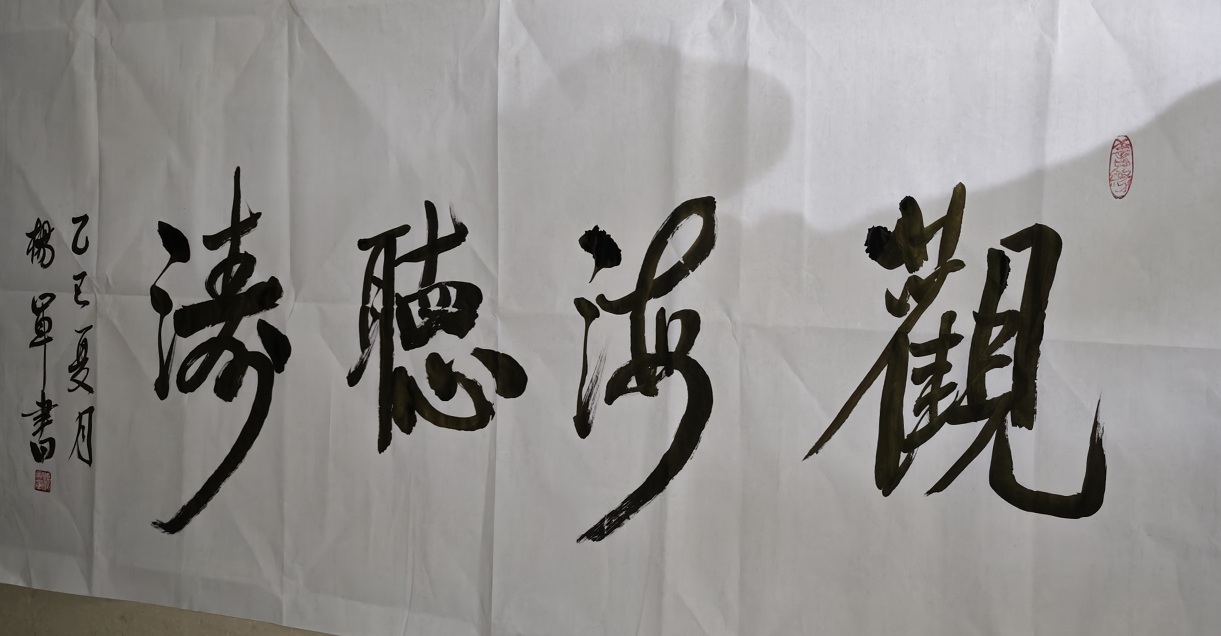 觀海聽濤
乙巳夏月
楊軍書